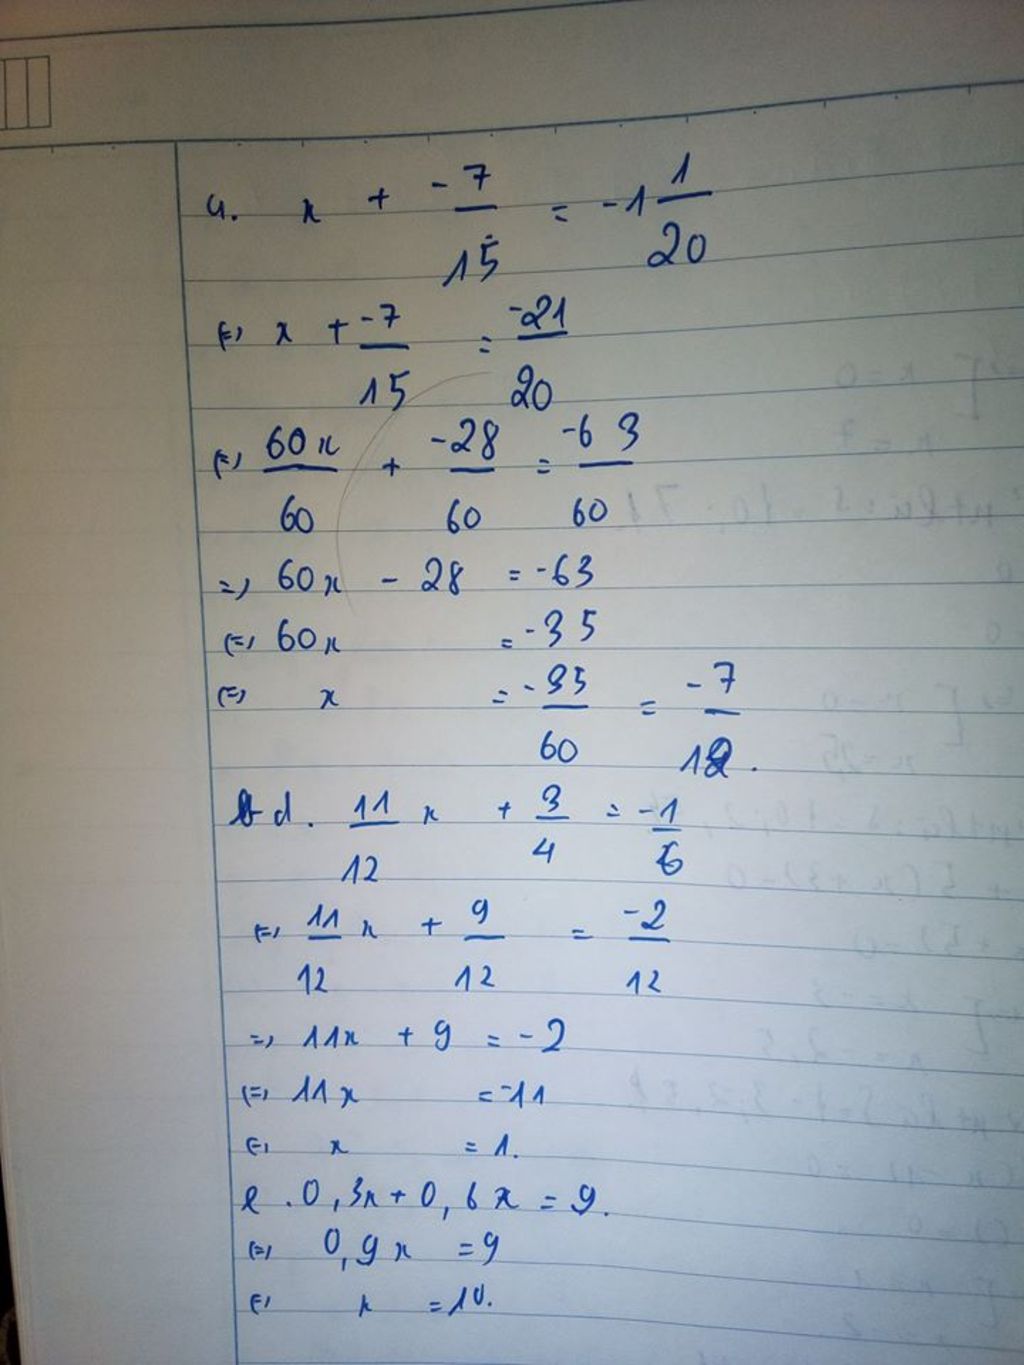 a. x + -7/15 = -1 1/20
(=) x + -7/15 = -21/20
(=) 60x/60 + -28/60 = -63/60
=) 60x - 28 = -63
(=) 60x = -35
(=) x = -35/60 = -7/12.
d. 11/12 x + 3/4 = -1/6
(=) 11/12 x + 9/12 = -2/12
=) 11x + 9 = -2
(=) 11x = -11
(=) x = 1.
e. 0,3x + 0,6x = 9.
(=) 0,9x = 9
(=) x = 10.